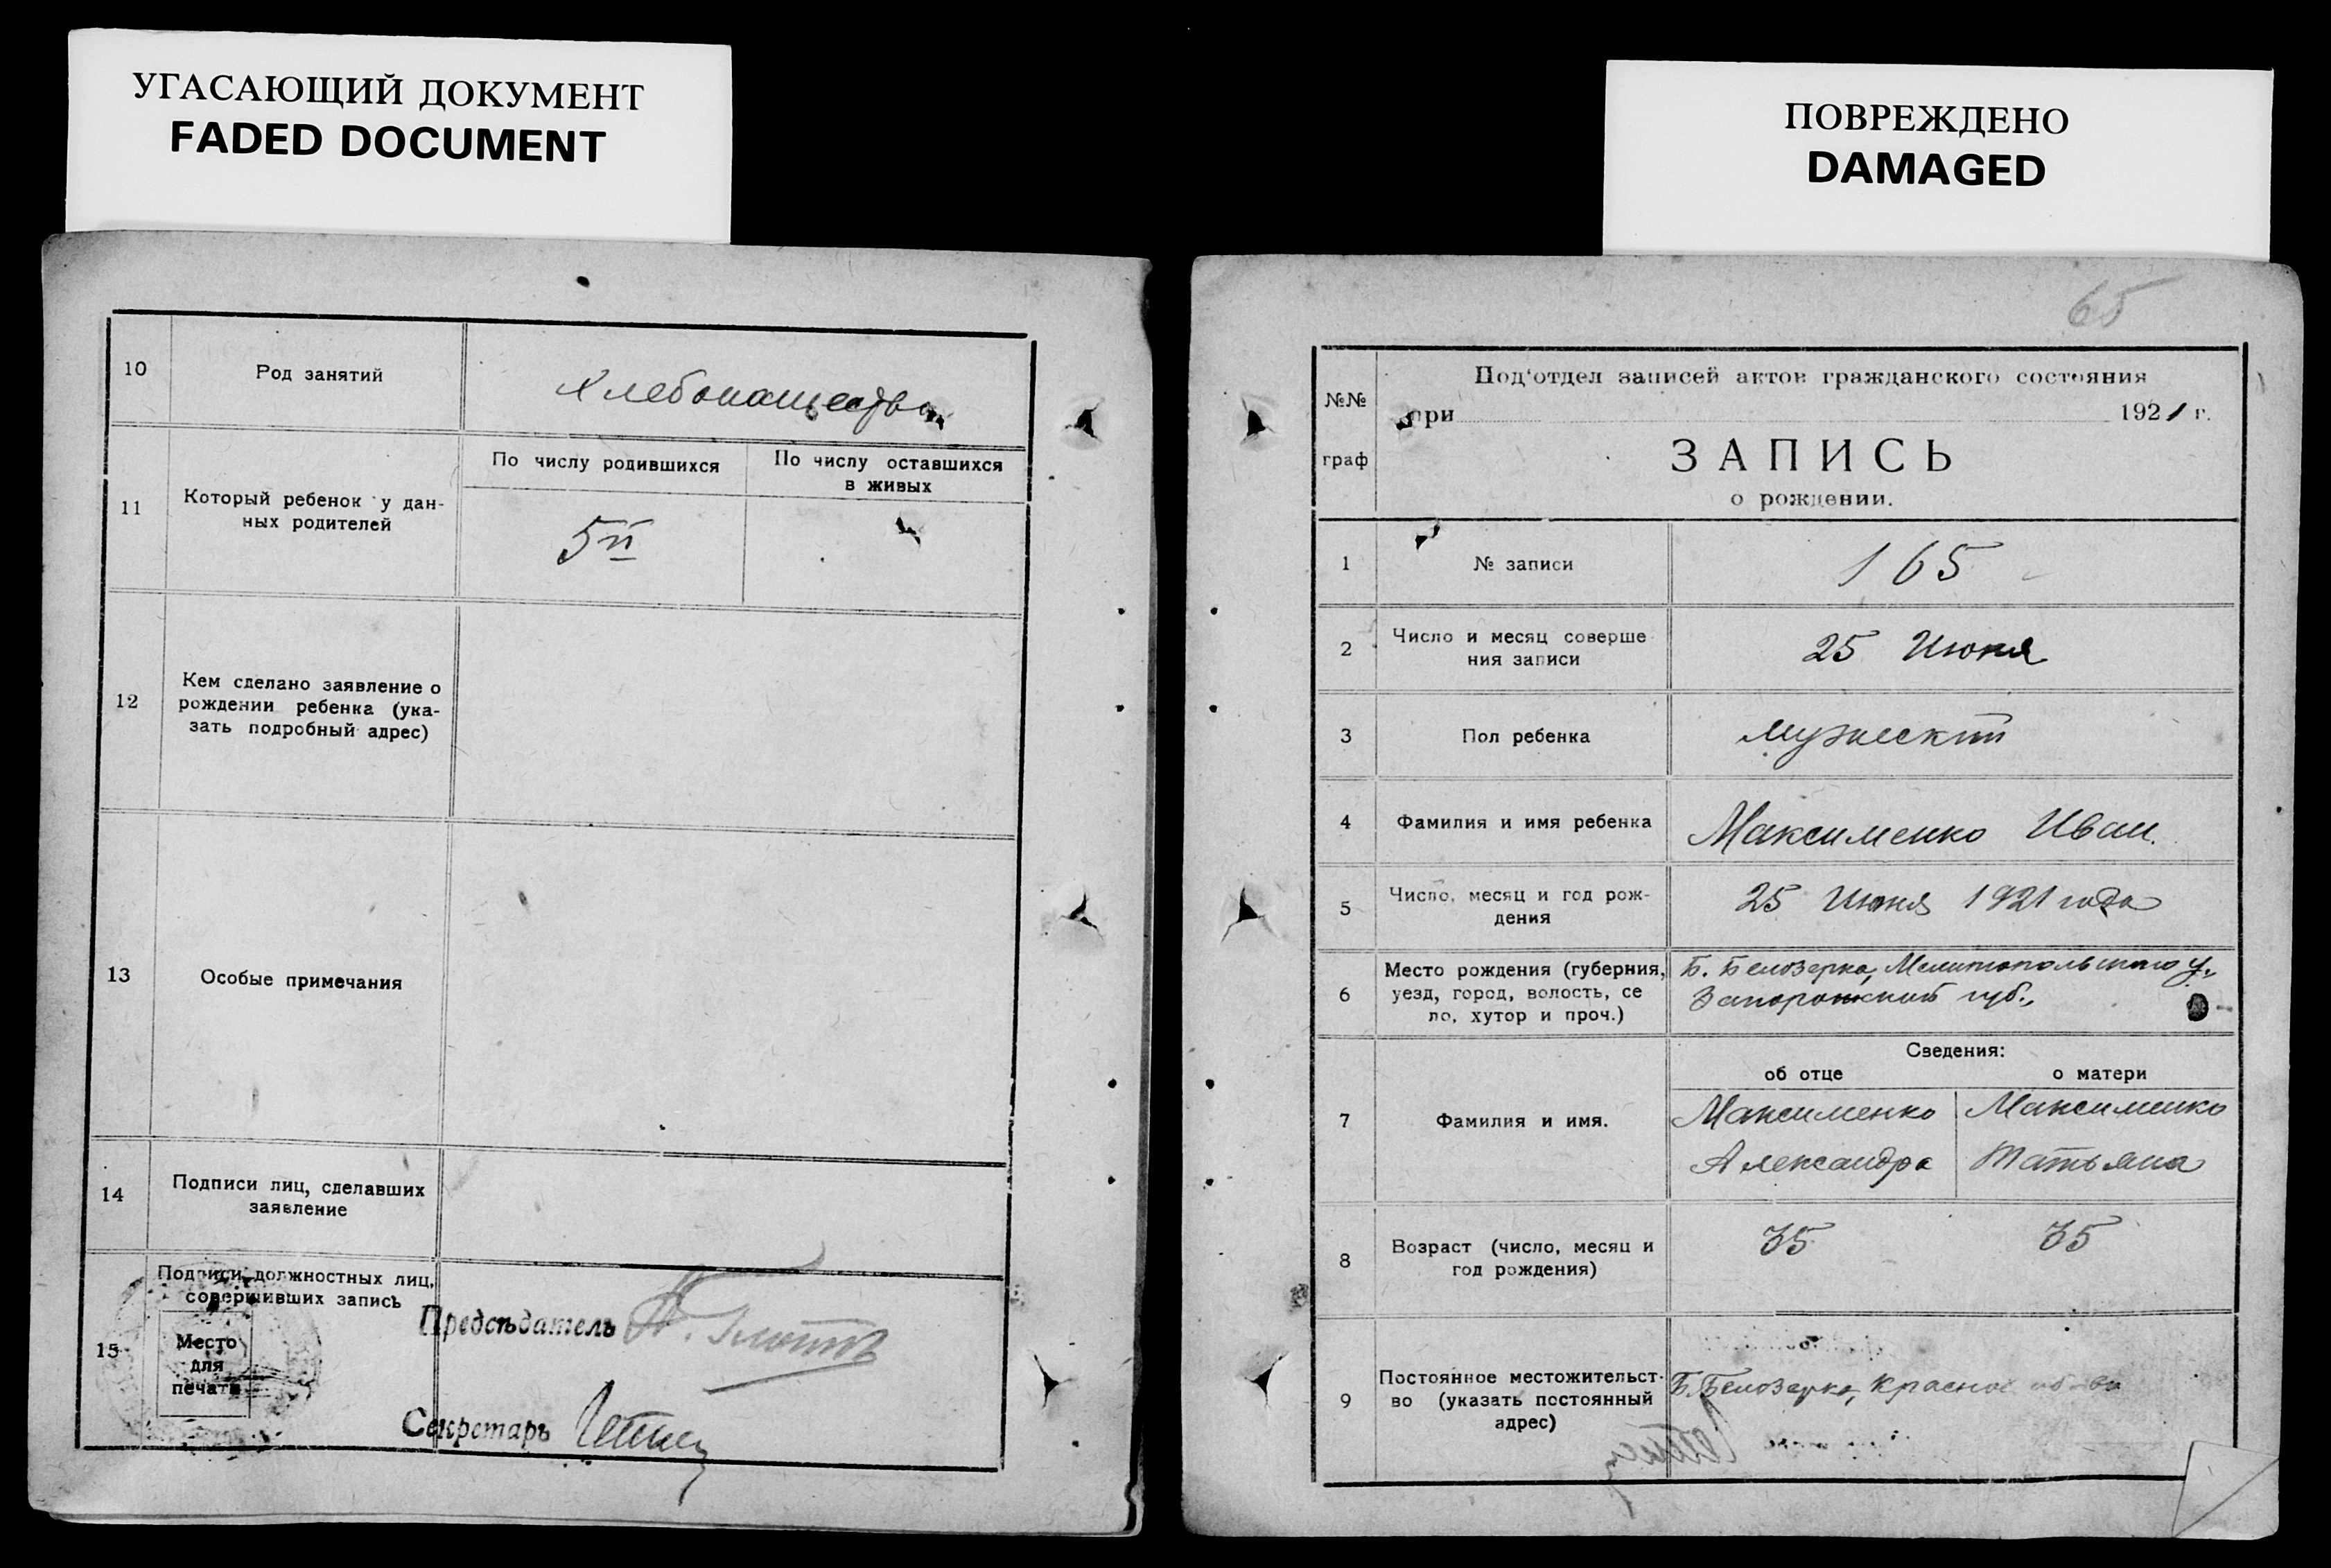 УГАСАЮЩИЙ ДОКУМЕНТ
FADED DOCUMENT
10
Род занятий
Хлебопашество
11
Который ребенок у дан-
ных родителей
По числу родившихся
По числу оставшихся
в живых
5й
12
Кем сделано заявление о
рождении ребенка (ука-
зать подробный адрес)
13
Особые примечания
14
Подписи лиц, сделавших
заявление
15
Подписи должностных лиц,
совершивших запись
Место
для
печати
Предсѣдатель
Секретарь
ПОВРЕЖДЕНО
DAMAGED
65
№№
граф
Под'отдел записей актов гражданского состояния
при 1921 г.
ЗАПИСЬ
о рождении.
1
№ записи
165
2
Число и месяц соверше
ния записи
25 Июня
3
Пол ребенка
мужеский
4
Фамилия и имя ребенка
Максименко Иван.
5
Число, месяц и год рож-
дения
25 Июня 1921 года
6
Место рождения (губерния,
уезд, город, волость, се
ло, хутор и проч.)
Б. Белозерка, Мелитопольского у.,
Запорожской губ.,
Сведения:
об отце
о матери
7
Фамилия и имя.
Максименко
Александра
Максименко
Татьяна
8
Возраст (число, месяц и
год рождения)
35
35
9
Постоянное местожительст-
во (указать постоянный
адрес)
Б. Белозерка, Красное